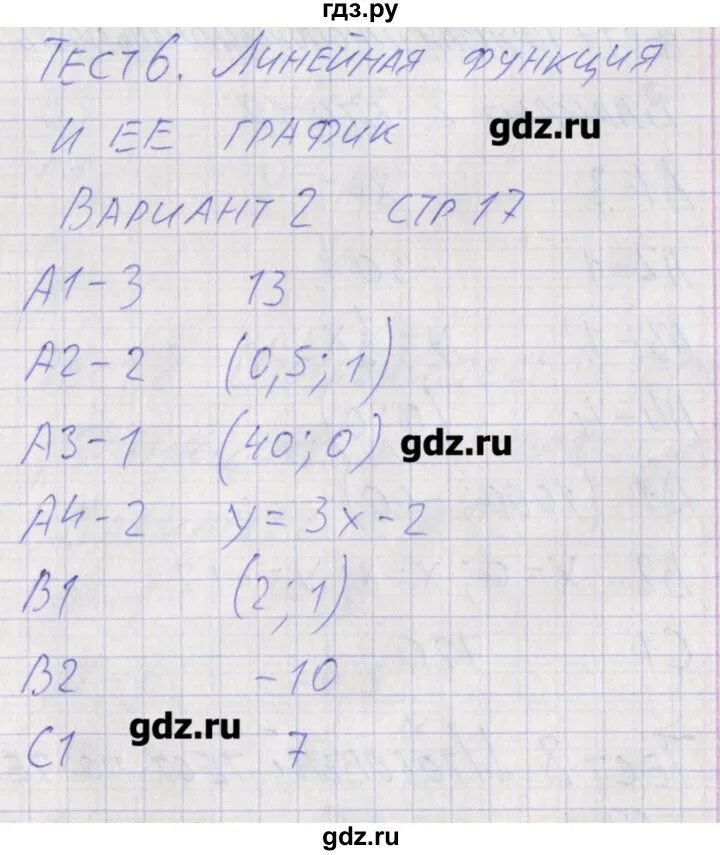 гдз.ру
ТЕСТ 6. ЛИНЕЙНАЯ ФУНКЦИЯ
И ЕЕ ГРАФИК gdz.ru
ВАРИАНТ 2 СТР 17
А1-3 13
А2-2 (0,5; 1)
А3-1 (40; 0) gdz.ru
А4-2 y = 3x - 2
В1 (2; 1)
В2 -10
С1 gdz.ru 7
gdz.ru